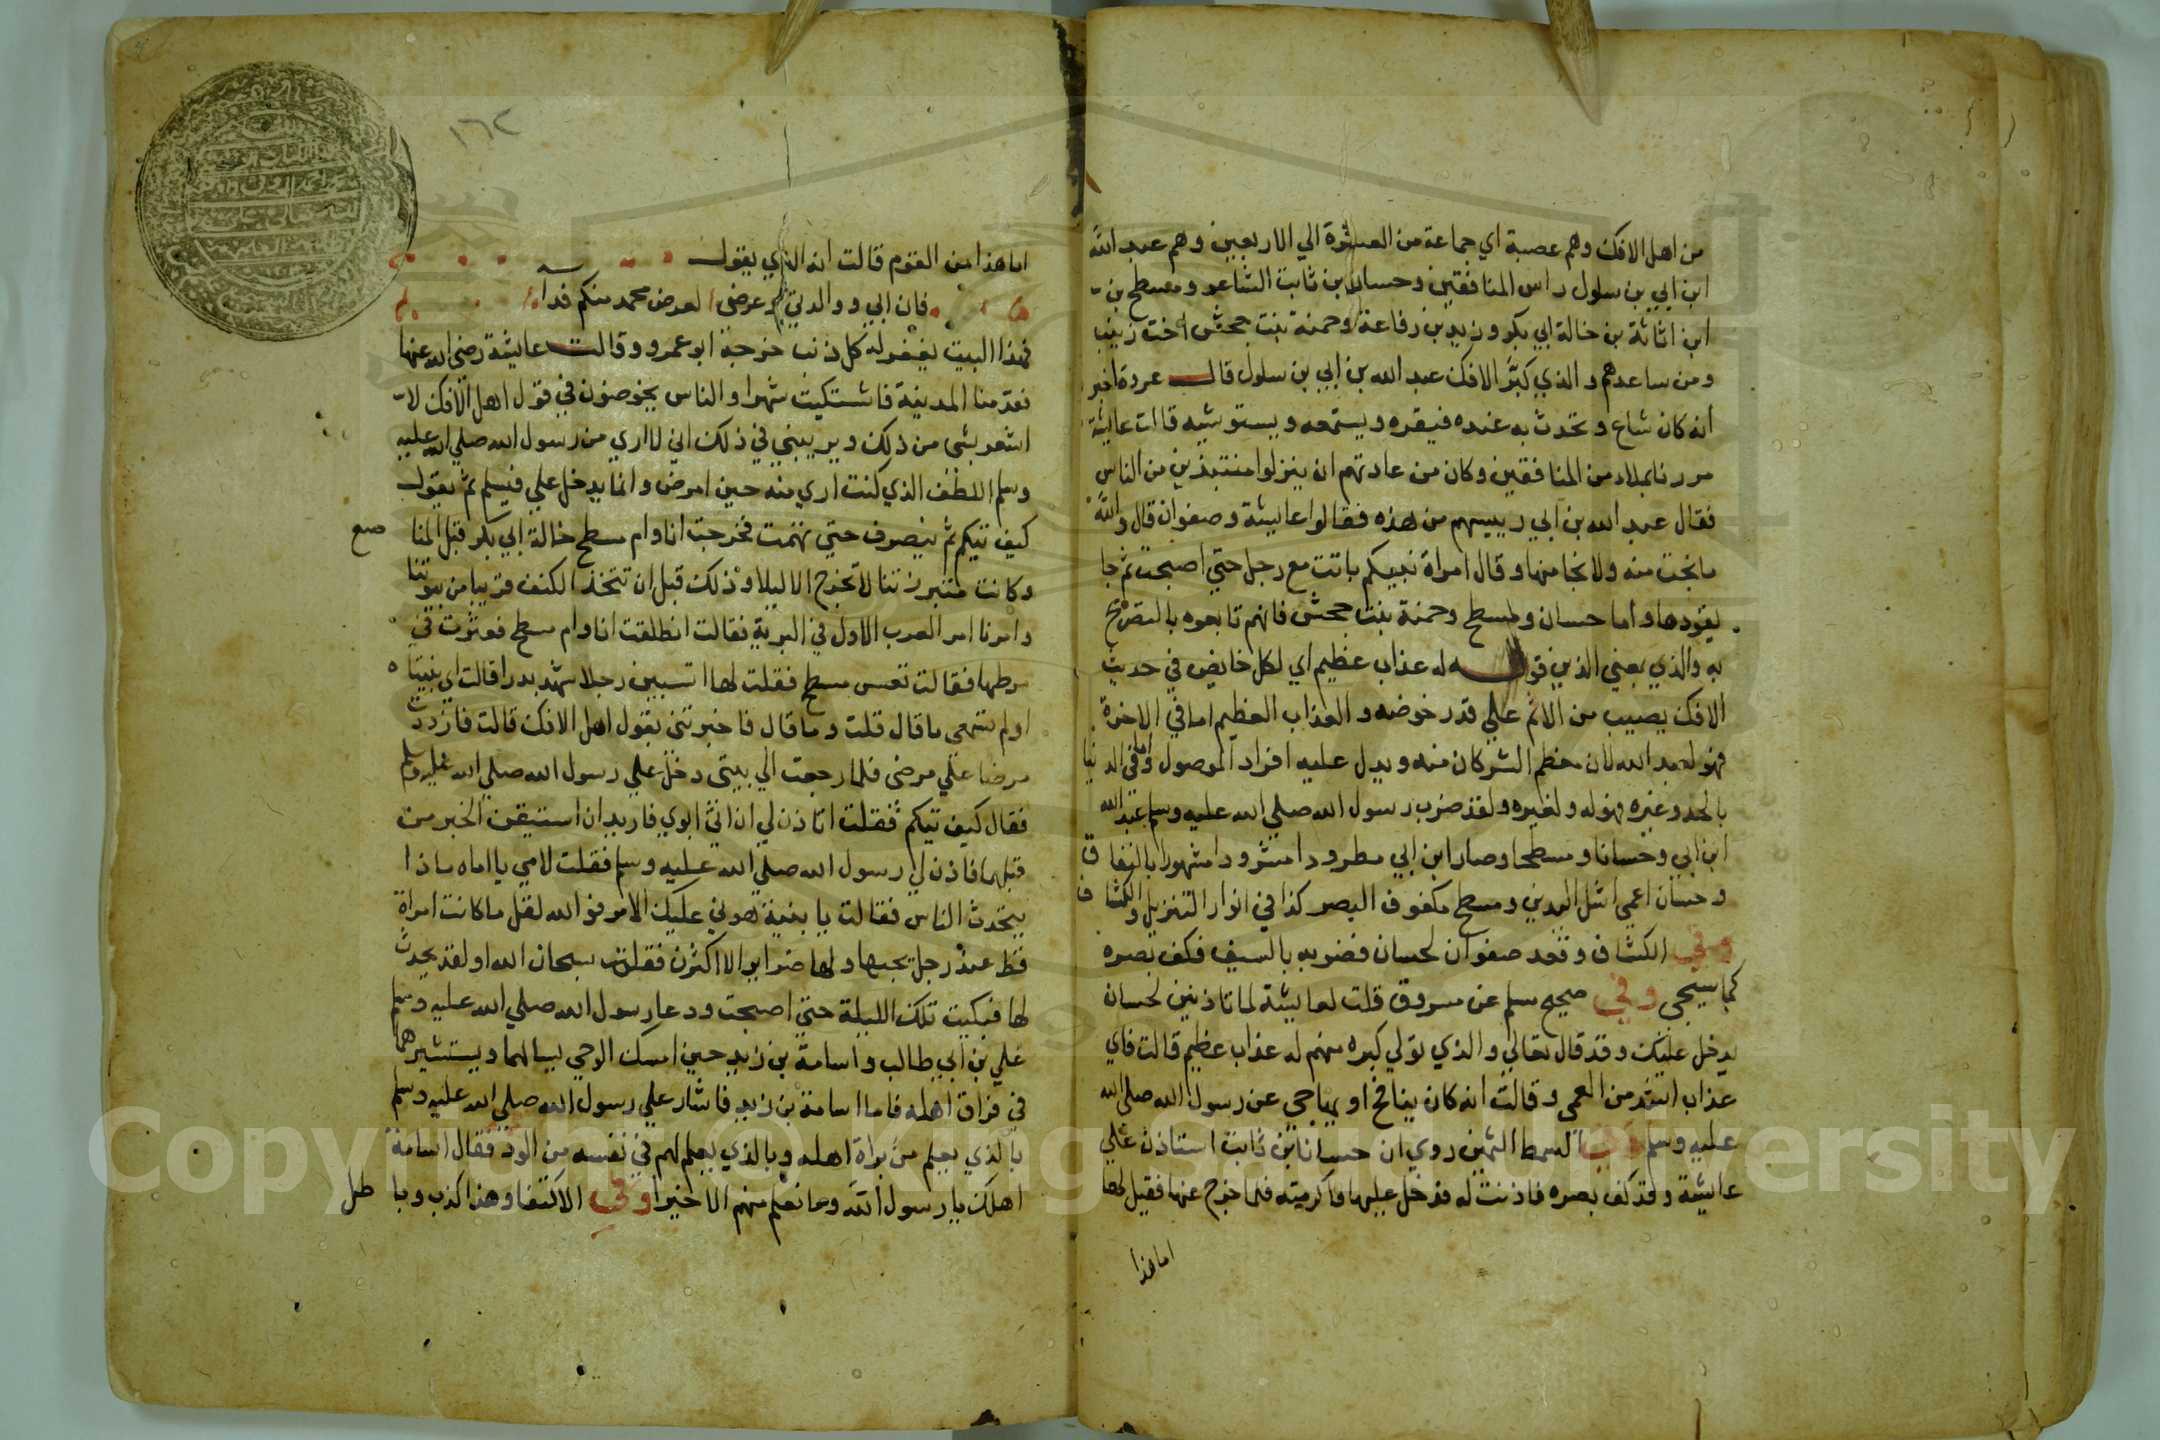 من اهل الافك وهم عصبة اي جماعة من العشرة الي الاربعين وهم عبد الله
ابن ابي بن سلول راس المنافقين وحسان بن ثابت الشاعر ومسطح بن
ابن اثاثة بن خالة ابي بكر وزيد بن رفاعة وحمنة بنت جحش اخت زينب
ومن ساعدهم والذي كبر الافك عبد الله بن ابي بن سلول قال عروة اخبر
انه كان شاع وتحدث به عنده فيقره ويستمعه ويستوشيه قالت عايشة
مررنا بملاء من المنافقين وكان من عادتهم ان ينزلوا منتبذين من الناس
فقال عبد الله بن ابي رييسهم من هذه فقالوا عايشة وصفوان قال والله
ما نجت منه ولا نجا منها وقال امراة نبيكم باتت مع رجل حتي اصبحت ثم جا
يقودها واما حسان ومسطح وحمنة بنت جحش فانهم تابعوه بالتصريح
به والذي بمعني الذين قوله له عذاب عظيم اي لكل خايض في حديث
الافك يصيب من الاثم علي قدر خوضه والعذاب العظيم اما في الاخرة
فهو لعبد الله لان معظم الشر كان منه ويدل عليه افراد الموصول واما في الدنيا
بالحد وغيره فهو له ولغيره ولقد ضرب رسول الله صلي الله عليه وسلم عبد الله
ابن ابي وحسانا ومسطحا وصار ابن ابي مطرودا مشهورا بالنفاق
وحسان اعمي اشل اليدين ومسطح مكفوف البصر كذا في انوار التنزيل والكشاف
وفي الكشاف وقعد صفوان لحسان فضربه بالسيف فكف بصره
كما سيجي وفي صحيح مسلم عن مسروق قلت لعايشة لما تاذنين لحسان
يدخل عليك وقد قال تعالي والذي تولي كبره منهم له عذاب عظيم قالت فاي
عذاب اشد من العمي وقالت انه كان ينافح او يهاجي عن رسول الله صلي الله
عليه وسلم السمط الثمين روي ان حسانا بن ثابت استاذن علي
عايشة وقد كف بصره فاذنت له فدخل عليها فاكرمته فلما خرج عنها فقيل لها
اما هذا
١٦٢
اما هذا من القوم قالت انه الذي يقول
فان ابي ووالدتي وعرضي لعرض محمد منكم فداء
فهذا البيت يغفر له كل ذنب خرجه ابو عمرو وقالت عايشة رضي الله عنها
فقدمنا المدينة فاشتكيت شهرا والناس يخوضون في قول اهل الافك لا
اشعر بشي من ذلك ويريبني في ذلك اني لا اري من رسول الله صلي الله عليه
وسلم اللطف الذي كنت اري منه حين امرض وانما يدخل علي فيسلم ثم يقول
كيف تيكم ثم ينصرف حتي نقهت فخرجت انا وام مسطح خالة ابي بكر قبل المنا صع
وكانت متبرزتنا لا نخرج الا ليلا وذلك قبل ان تتخذ الكنف قريبا من بيوتنا
وامرنا امر العرب الاول في البرية فقالت انطلقت انا وام مسطح فعثرت في
مرطها فقالت تعس مسطح فقلت لها اتسبين رجلا شهد بدرا قالت اي بنيتاه
اولم تسمعي ما قال قلت وما قال فاخبرتني بقول اهل الافك قالت فازددت
مرضا علي مرضي فلما رجعت الي بيتي دخل علي رسول الله صلي الله عليه وسلم
فقال كيف تيكم فقلت اتاذن لي ان اتي ابوي فاريد ان استيقن الخبر من
قبلهما فاذن لي رسول الله صلي الله عليه وسلم فقلت لامي يا اماه ماذا
يتحدث الناس فقالت يا بنية هوني عليك الامر فوالله لقل ما كانت امراة
قط عند رجل يحبها ولها ضراير الا اكثرن فقلت سبحان الله اولقد تحدث
لها فبكيت تلك الليلة حتي اصبحت ودعا رسول الله صلي الله عليه وسلم
علي بن ابي طالب واسامة بن زيد حين امسك الوحي يسالهما ويستشيرهما
في فراق اهله فاما اسامة بن زيد فاشار علي رسول الله صلي الله عليه وسلم
بالذي يعلم من براة اهله وبالذي يعلم لهم في نفسه من الود فقال اسامة
اهلك يا رسول الله وما نعلم منهم الا خيرا وفي الاكتفا وهذا كذب وبا طل
Copyright © King Saud University